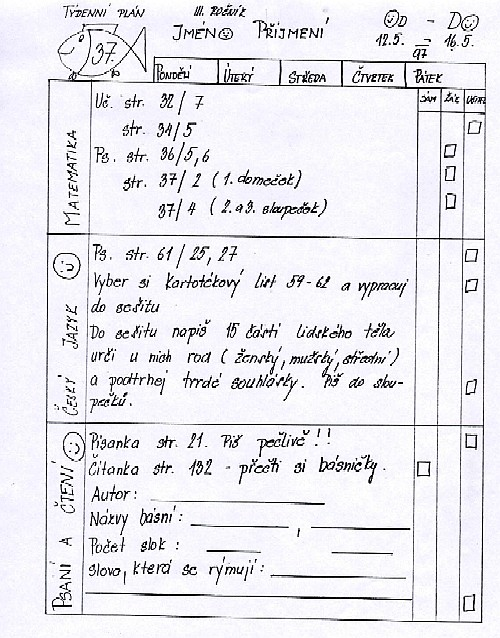 TÝDENNÍ PLÁN
37.
III. ROČNÍK
JMÉNO PŘÍJMENÍ
OD - DO
12.5. 97 16.5.
PONDĚLÍ ÚTERÝ STŘEDA ČTVRTEK PÁTEK
SÁM ŽÁK UČITEL
MATEMATIKA
Uč. str. 32/7
str. 34/5
Ps. str. 36/5,6
str. 37/2 (1. domeček)
37/4 (2. a 3. sloupeček)
ČESKÝ JAZYK
Ps. str. 61/25, 27
Vyber si kartotékový list 59-62 a vypracuj
do sešitu
Do sešitu napiš 15 částí lidského těla
urči u nich rod (ženský, mužský, střední)
a podtrhej tvrdé souhlásky. Piš do slou-
pečků.
PSANÍ A ČTENÍ
Písanka str. 21. Piš pečlivě!!
Čítanka str. 132 - přečti si básničky.
Autor:
Názvy básní: ,
Počet slok:
slova, která se rýmují: